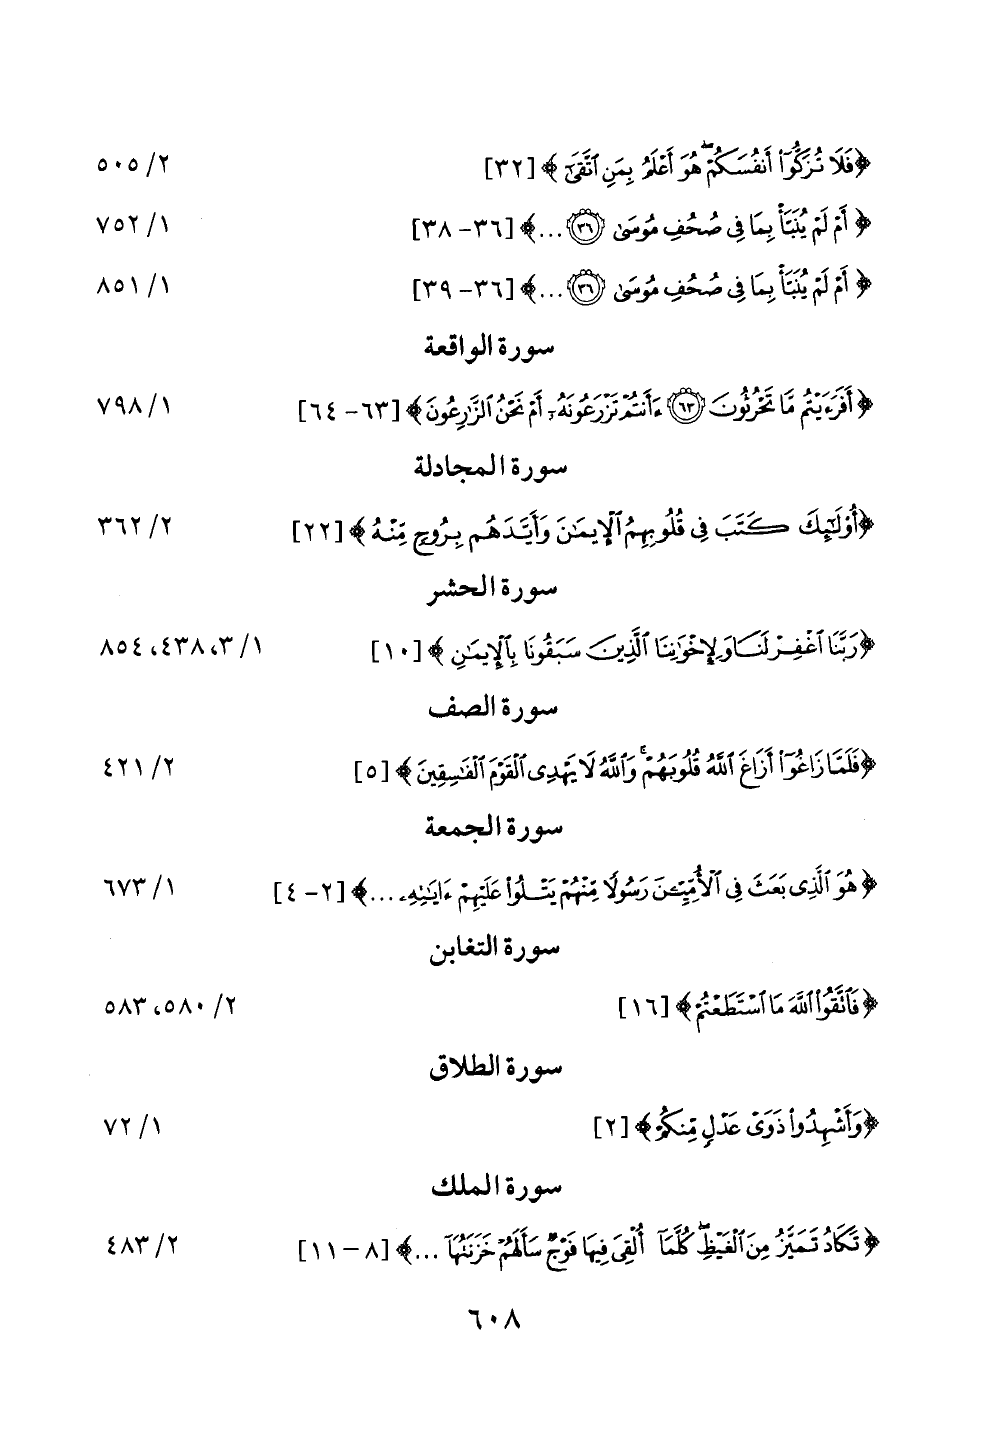 ﴿فَلَا تُزَكُّوٓا۟ أَنفُسَكُمْ ۖ هُوَ أَعْلَمُ بِمَنِ ٱتَّقَىٰٓ﴾ [٣٢] ٢/ ٥٠٥
﴿أَمْ لَمْ يُنَبَّأْ بِمَا فِى صُحُفِ مُوسَىٰ ٣٦ ...﴾ [٣٦- ٣٨] ١/ ٧٥٢
﴿أَمْ لَمْ يُنَبَّأْ بِمَا فِى صُحُفِ مُوسَىٰ ٣٦ ...﴾ [٣٦- ٣٩] ١/ ٨٥١
سورة الواقعة
﴿أَفَرَءَيْتُم مَّا تَحْرُثُونَ ٦٣ ءَأَنتُمْ تَزْرَعُونَهُۥٓ أَمْ نَحْنُ ٱلزَّٰرِعُونَ﴾ [٦٣- ٦٤] ١/ ٧٩٨
سورة المجادلة
﴿أُو۟لَٰٓئِكَ كَتَبَ فِى قُلُوبِهِمُ ٱلْإِيمَٰنَ وَأَيَّدَهُم بِرُوحٍ مِّنْهُ﴾ [٢٢] ٢/ ٣٦٢
سورة الحشر
﴿رَبَّنَا ٱغْفِرْ لَنَا وَلِإِخْوَٰنِنَا ٱلَّذِينَ سَبَقُونَا بِٱلْإِيمَٰنِ﴾ [١٠] ١/ ٣، ٤٣٨، ٨٥٤
سورة الصف
﴿فَلَمَّا زَاغُوٓا۟ أَزَاغَ ٱللَّهُ قُلُوبَهُمْ ۚ وَٱللَّهُ لَا يَهْدِى ٱلْقَوْمَ ٱلْفَٰسِقِينَ﴾ [٥] ٢/ ٤٢١
سورة الجمعة
﴿هُوَ ٱلَّذِى بَعَثَ فِى ٱلْأُمِّيِّـۧنَ رَسُولًا مِّنْهُمْ يَتْلُوا۟ عَلَيْهِمْ ءَايَٰتِهِۦ ...﴾ [٢- ٤] ١/ ٦٧٣
سورة التغابن
﴿فَٱتَّقُوا۟ ٱللَّهَ مَا ٱسْتَطَعْتُمْ﴾ [١٦] ٢/ ٥٨٠، ٥٨٣
سورة الطلاق
﴿وَأَشْهِدُوا۟ ذَوَىْ عَدْلٍ مِّنكُمْ﴾ [٢] ١/ ٧٢
سورة الملك
﴿تَكَادُ تَمَيَّزُ مِنَ ٱلْغَيْظِ ۖ كُلَّمَآ أُلْقِىَ فِيهَا فَوْجٌ سَأَلَهُمْ خَزَنَتُهَآ ...﴾ [٨- ١١] ٢/ ٤٨٣
٦٠٨